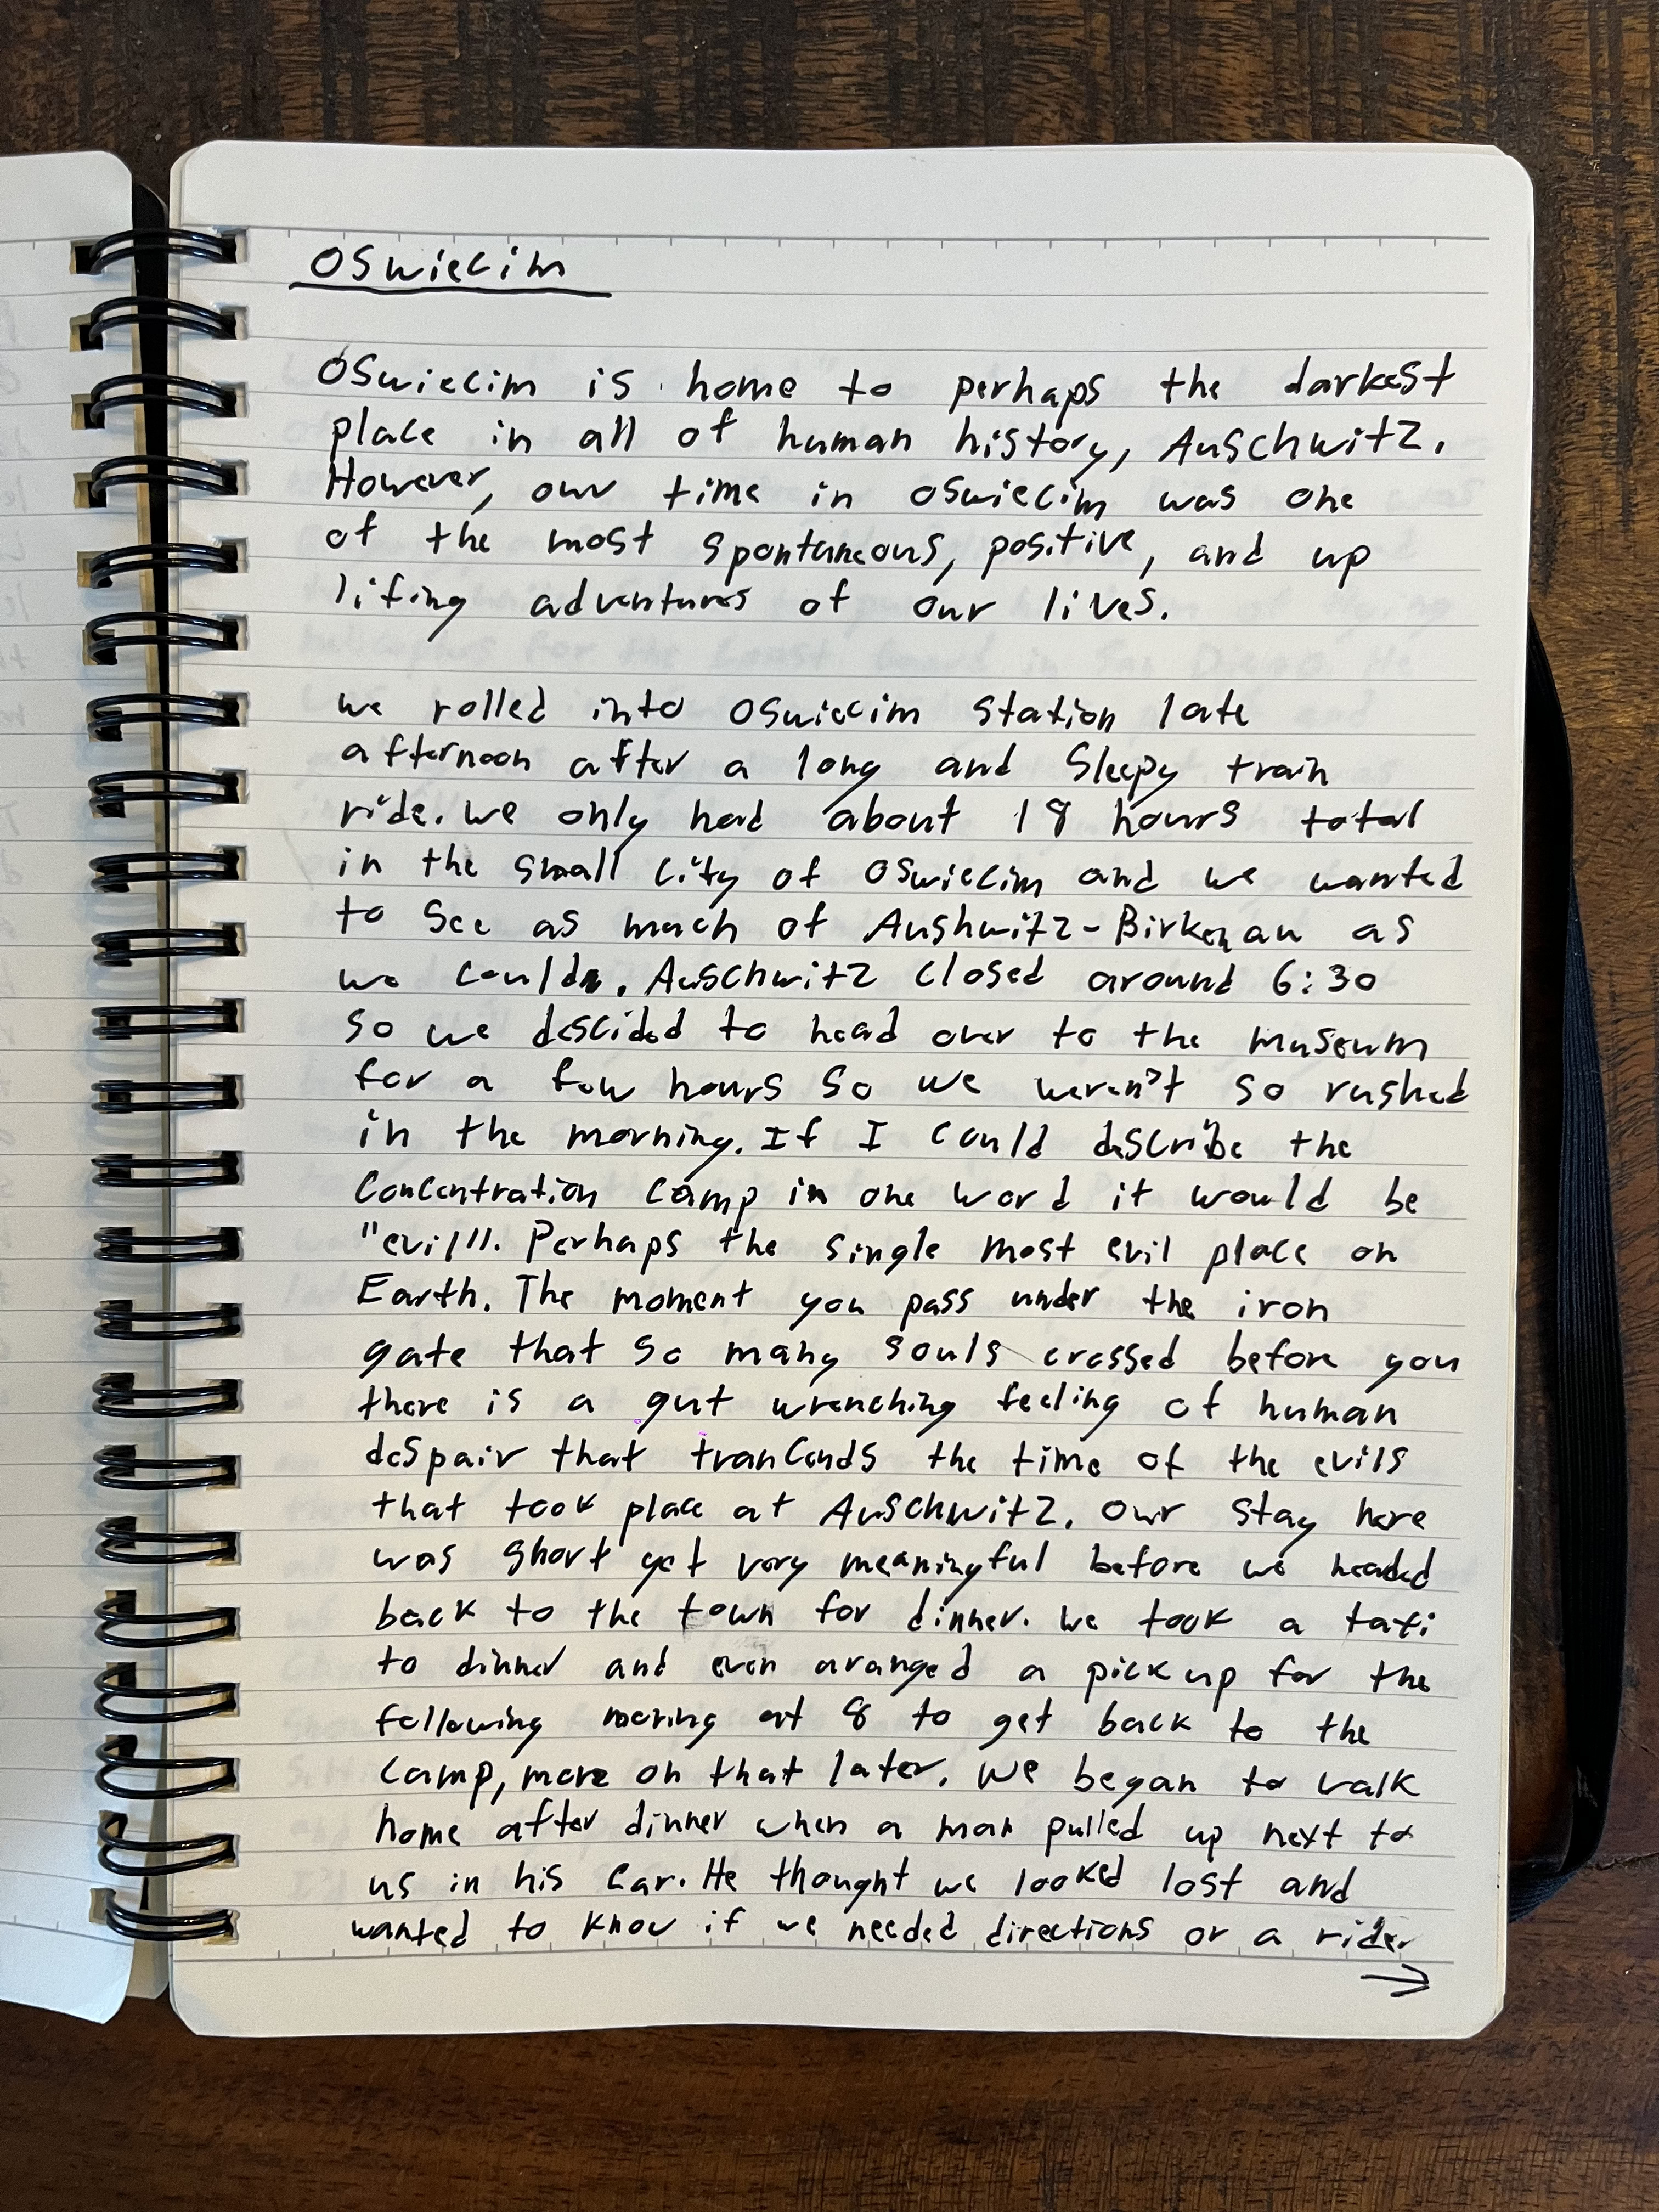 Oswiecim
Oswiecim is home to perhaps the darkest
place in all of human history, Auschwitz.
However, our time in Oswiecim was one
of the most spontaneous, positive, and up
lifing adventures of our lives.
we rolled into Oswiecim Station late
afternoon after a long and Sleepy train
ride. we only had about 18 hours total
in the small city of Oswiecim and we wanted
to see as much of Aushwitz-Birkenau as
we could. Auschwitz closed around 6:30
so we descided to head over to the museum
for a few hours so we weren't so rushed
in the morning. If I could describe the
Concentration camp in one word it would be
"evil". Perhaps the single most evil place on
Earth. The moment you pass under the iron
gate that so many souls crossed before you
there is a gut wrenching feeling of human
despair that trancends the time of the evils
that took place at Auschwitz. Our stay here
was short yet very meaningful before we headed
back to the town for dinner. We took a taxi
to dinner and even aranged a pick up for the
following moring at 8 to get back to the
camp, more on that later. We began to walk
home after dinner when a man pulled up next to
us in his car. He thought we looked lost and
wanted to know if we needed directions or a ride.
→